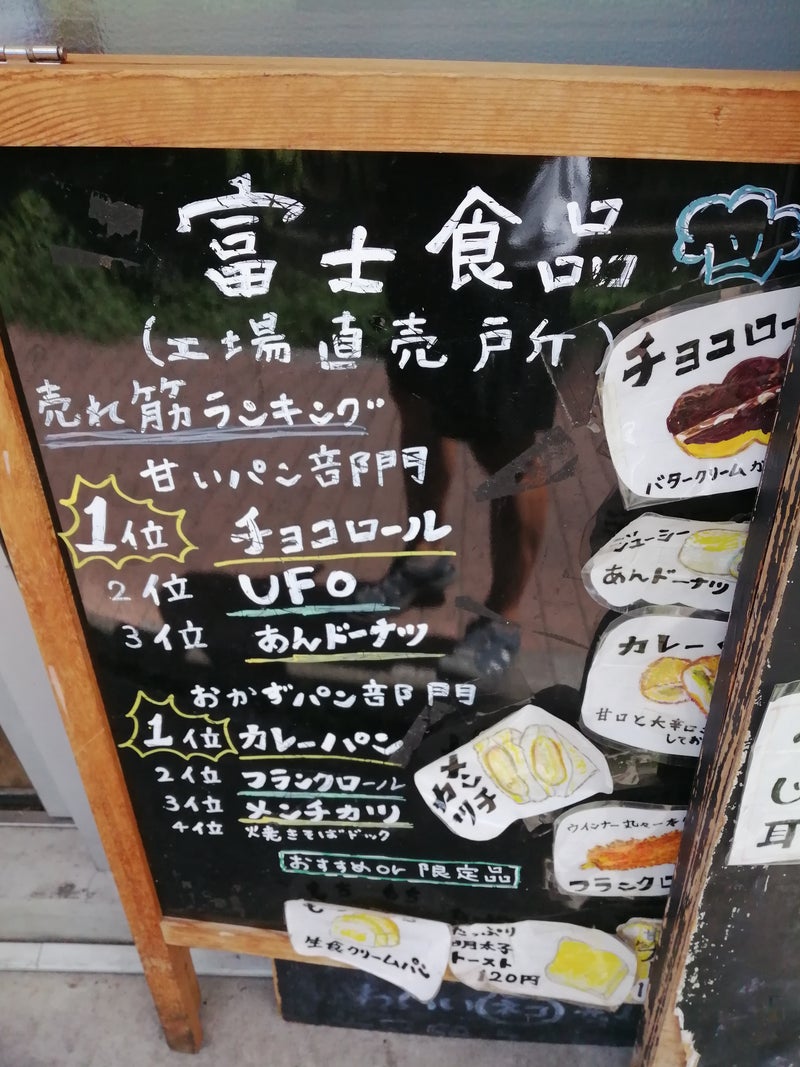 富士食品
(工場直売所)
売れ筋ランキング
甘いパン部門
1位 チョコロール
2位 UFO
3位 あんドーナツ
おかずパン部門
1位 カレーパン
2位 フランクロール
3位 メンチカツ
4位 焼きそばドック
おすすめor限定品
チョコロー
バタークリームが
ジューシー
あんドーナツ
カレー
甘口と大辛に
してお
メンチ
カツ
ウインナー丸々一本
フランクロ
もちもち
生食クリームパン
たっぷり
明太子
トースト
120円
し
耳